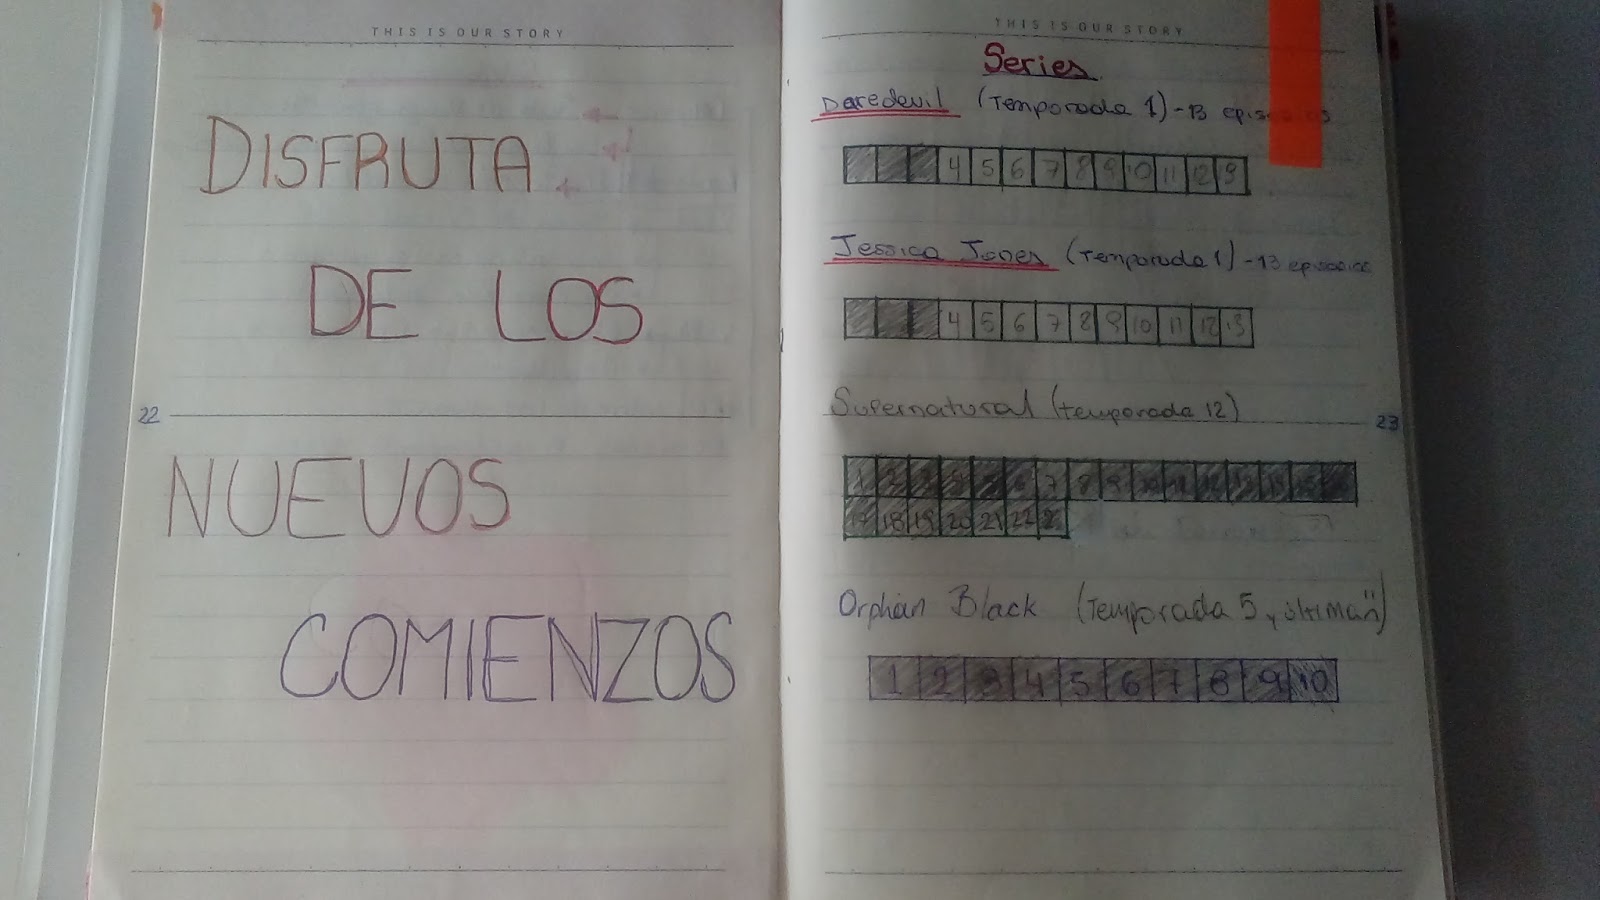 THIS IS OUR STORY
DISFRUTA
DE LOS
22
NUEVOS
COMIENZOS
THIS IS OUR STORY
Series
Daredevil (Temporada 1) - 13 episodios
4 5 6 7 8 9 10 11 12 13
Jessica Jones (Temporada 1) - 13 episodios
4 5 6 7 8 9 10 11 12 13
Supernatural (temporada 12)
23
1 2 3 4 5 6 7 8 9 10 11 12 13 14 15
17 18 19 20 21 22 2
Orphan Black (Temporada 5 y última")
1 2 3 4 5 6 7 8 9 10